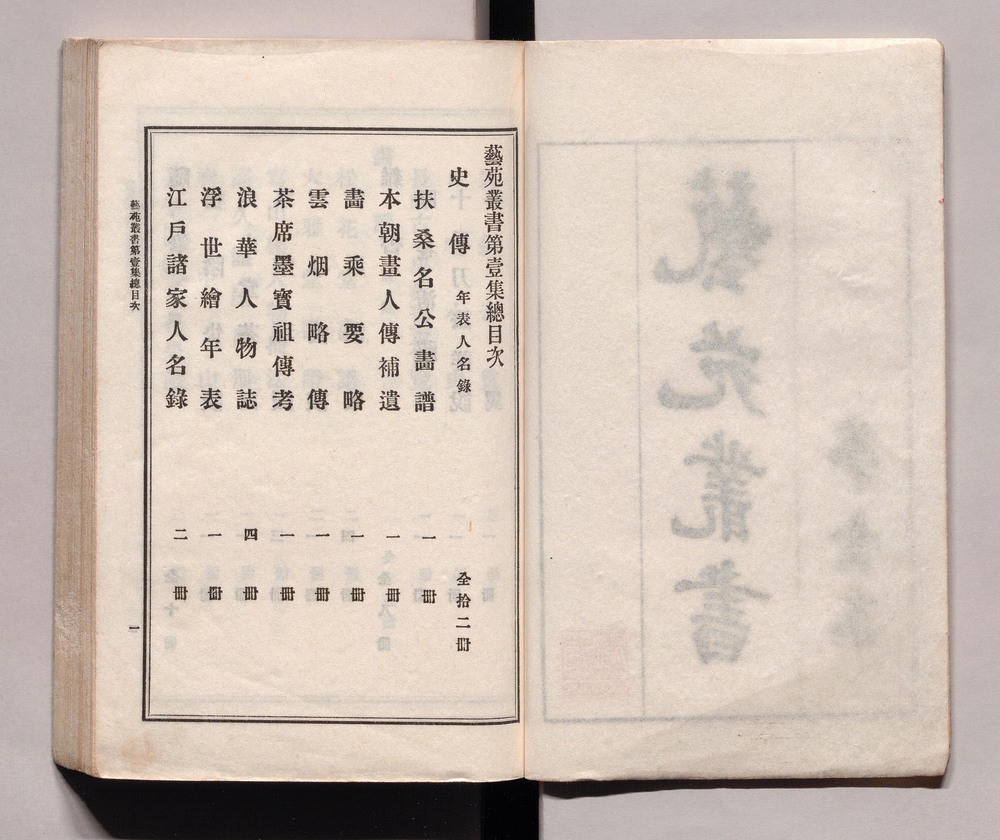 藝苑叢書第壹集總目次
史傳 年表人名錄 全拾二冊
扶桑名公畫譜 一冊
本朝畫人傳補遺 一冊
畵乘要略 一冊
雲烟略傳 一冊
茶席墨寶祖傳考 一冊
浪華人物誌 四冊
浮世繪年表 一冊
江戶諸家人名錄 二冊
藝苑叢書第壹集總目次
一
藝苑叢書